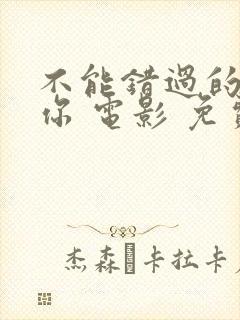 不能錯過的
你 電影 免
杰森 卡拉卡